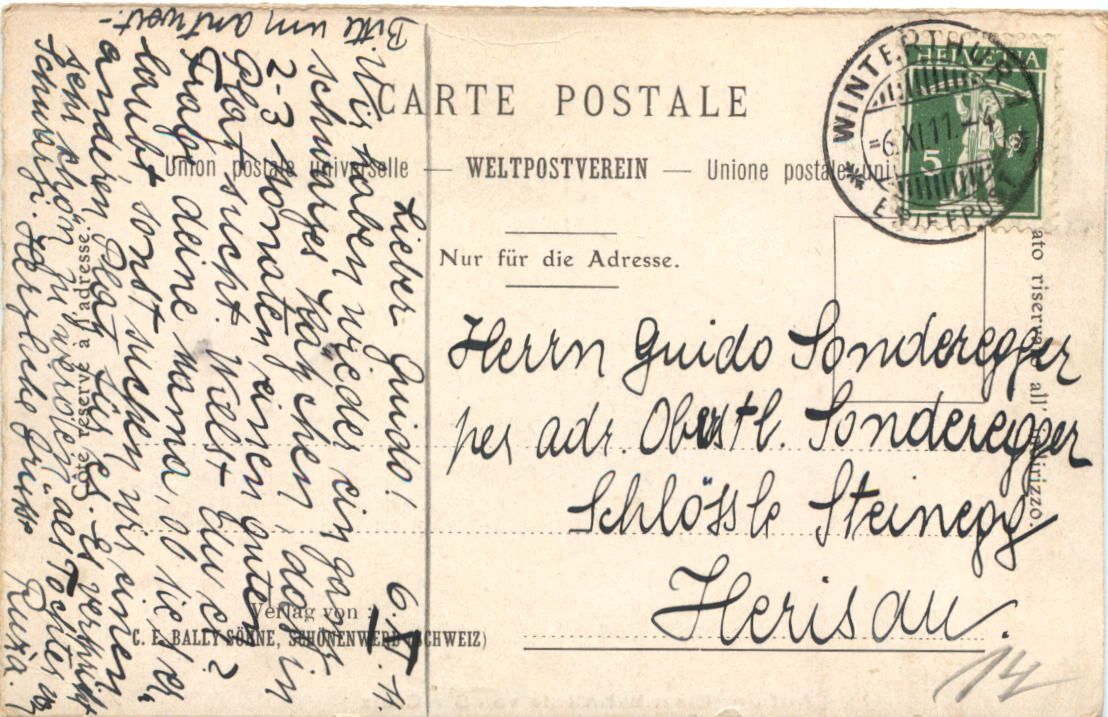 CARTE POSTALE
Union postale universelle — WELTPOSTVEREIN — Unione postale univ
Nur für die Adresse.
Côté réservé à l'adresse.
ato riservato all' indirizzo.
HELVETIA
5
WINTERTHUR 1
6.XI.11.-4
BRIEFPOST
Herrn Guido Sonderegger
per adr. Oberstl. Sonderegger
Schlössle Steinegg
Herisau.
14
6. XI. 11.
Lieber Guido!
Wir haben wieder ein ganz
schwarzes Kätzchen, das in
2-3 Monaten einen guten
Platz sucht. Willst du es?
Frag deine Mama, ob sie es er-
laubt, sonst suchen wir einen
anderen Platz für es. Es verspricht
sehr schön zu werden, als Tochter v.
Schwarzi. Herzliche Grüsse
Bitte um Antwort.-
Verlag von:
C. F. BALLY SÖHNE, SCHÖNENWERD (SCHWEIZ)